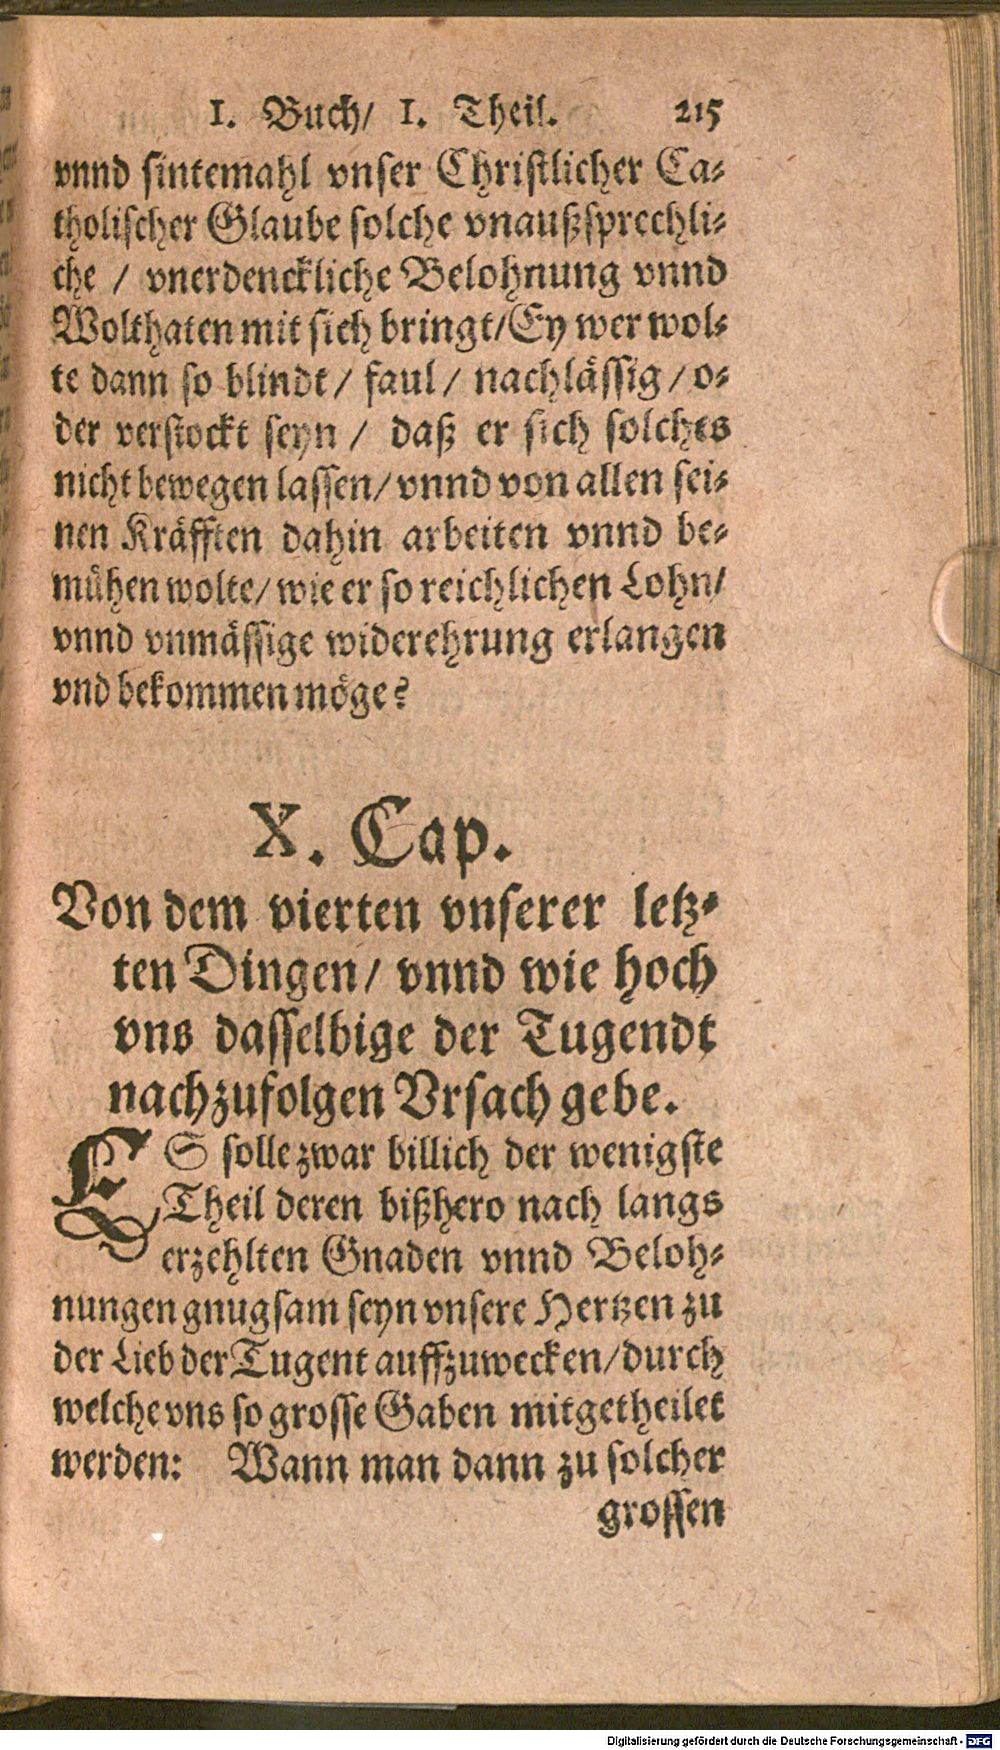 1. Buch/ 1. Theil. 215
vnnd sintemahl vnser Christlicher Ca-
tholischer Glaube solche vnaußsprechli-
che / vnerdenckliche Belohnung vnnd
Wolthaten mit sich bringt/Ey wer wol-
te dann so blindt / faul / nachlässig / o-
der verstockt seyn / daß er sich solches
nicht bewegen lassen/ vnnd von allen sei-
nen Kräfften dahin arbeiten vnnd be-
mühen wolte/ wie er so reichlichen Lohn/
vnnd vnmässige widerehrung erlangen
vnd bekommen möge?
X. Cap.
Von dem vierten vnserer letz-
ten Dingen/ vnnd wie hoch
vns dasselbige der Tugendt
nachzufolgen Vrsach gebe.
ES solle zwar billich der wenigste
Theil deren bißhero nach langs
erzehlten Gnaden vnnd Beloh-
nungen gnugsam seyn vnsere Hertzen zu
der Lieb der Tugent auffzuwecken/durch
welche vns so grosse Gaben mitgetheilet
werden: Wann man dann zu solcher
grossen
Digitalisierung gefördert durch die Deutsche Forschungsgemeinschaft - DFG